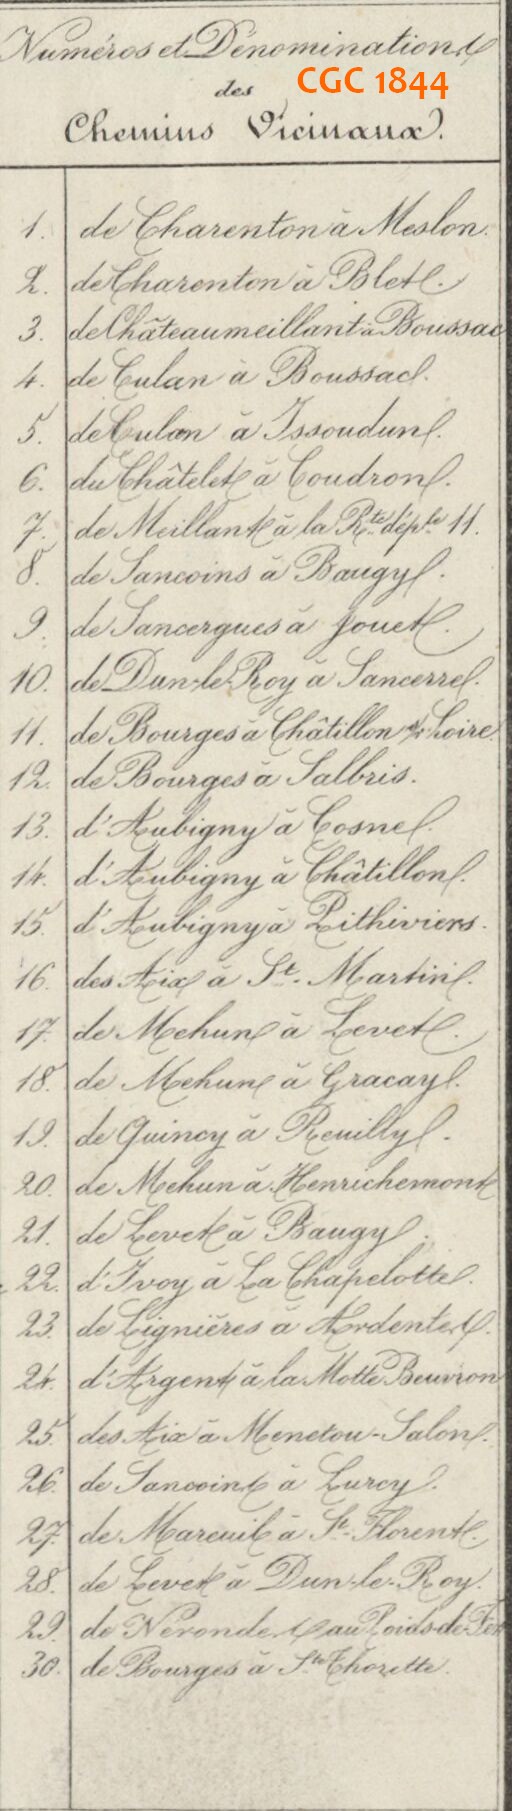 Numéros et Dénominations
CGC 1844
des
Chemins Vicinaux.
1. de Charenton à Meslon.
2. de Charenton à Blet.
3. de Châteaumeillant à Boussac
4. de Culan à Boussac.
5. de Culan à Issoudun.
6. du Châtelet à Coudron.
7. de Meillant à la Rte. déple. 11.
8. de Sancoins à Baugy.
9. de Sancergues à Jouet.
10. de Dun-le-Roy à Sancerre.
11. de Bourges à Châtillon s/r Loire.
12. de Bourges à Salbris.
13. d'Aubigny à Cosne.
14. d'Aubigny à Châtillon.
15. d'Aubigny à Pithiviers.
16. des Aix à St. Martin.
17. de Mehun à Levet.
18. de Mehun à Gracay.
19. de Quincy à Reuilly.
20. de Mehun à Henrichemont
21. de Levet à Baugy.
22. d'Ivoy à La Chapelotte.
23. de Lignières à Ardentes.
24. d'Argent à la Motte Beuvron
25. des Aix à Menetou-Salon.
26. de Sancoins à Lurcy.
27. de Mareuil à St. Florent.
28. de Levet à Dun-le-Roy.
29. de Nérondes au Poids-de-Fer
30. de Bourges à Ste. Thorette.